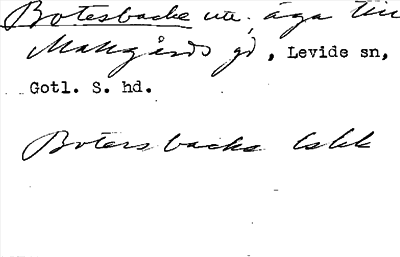 Botesbacke ute, äga till
Mallgårds gd, Levide sn,
Gotl. S. hd.
Botersbacke